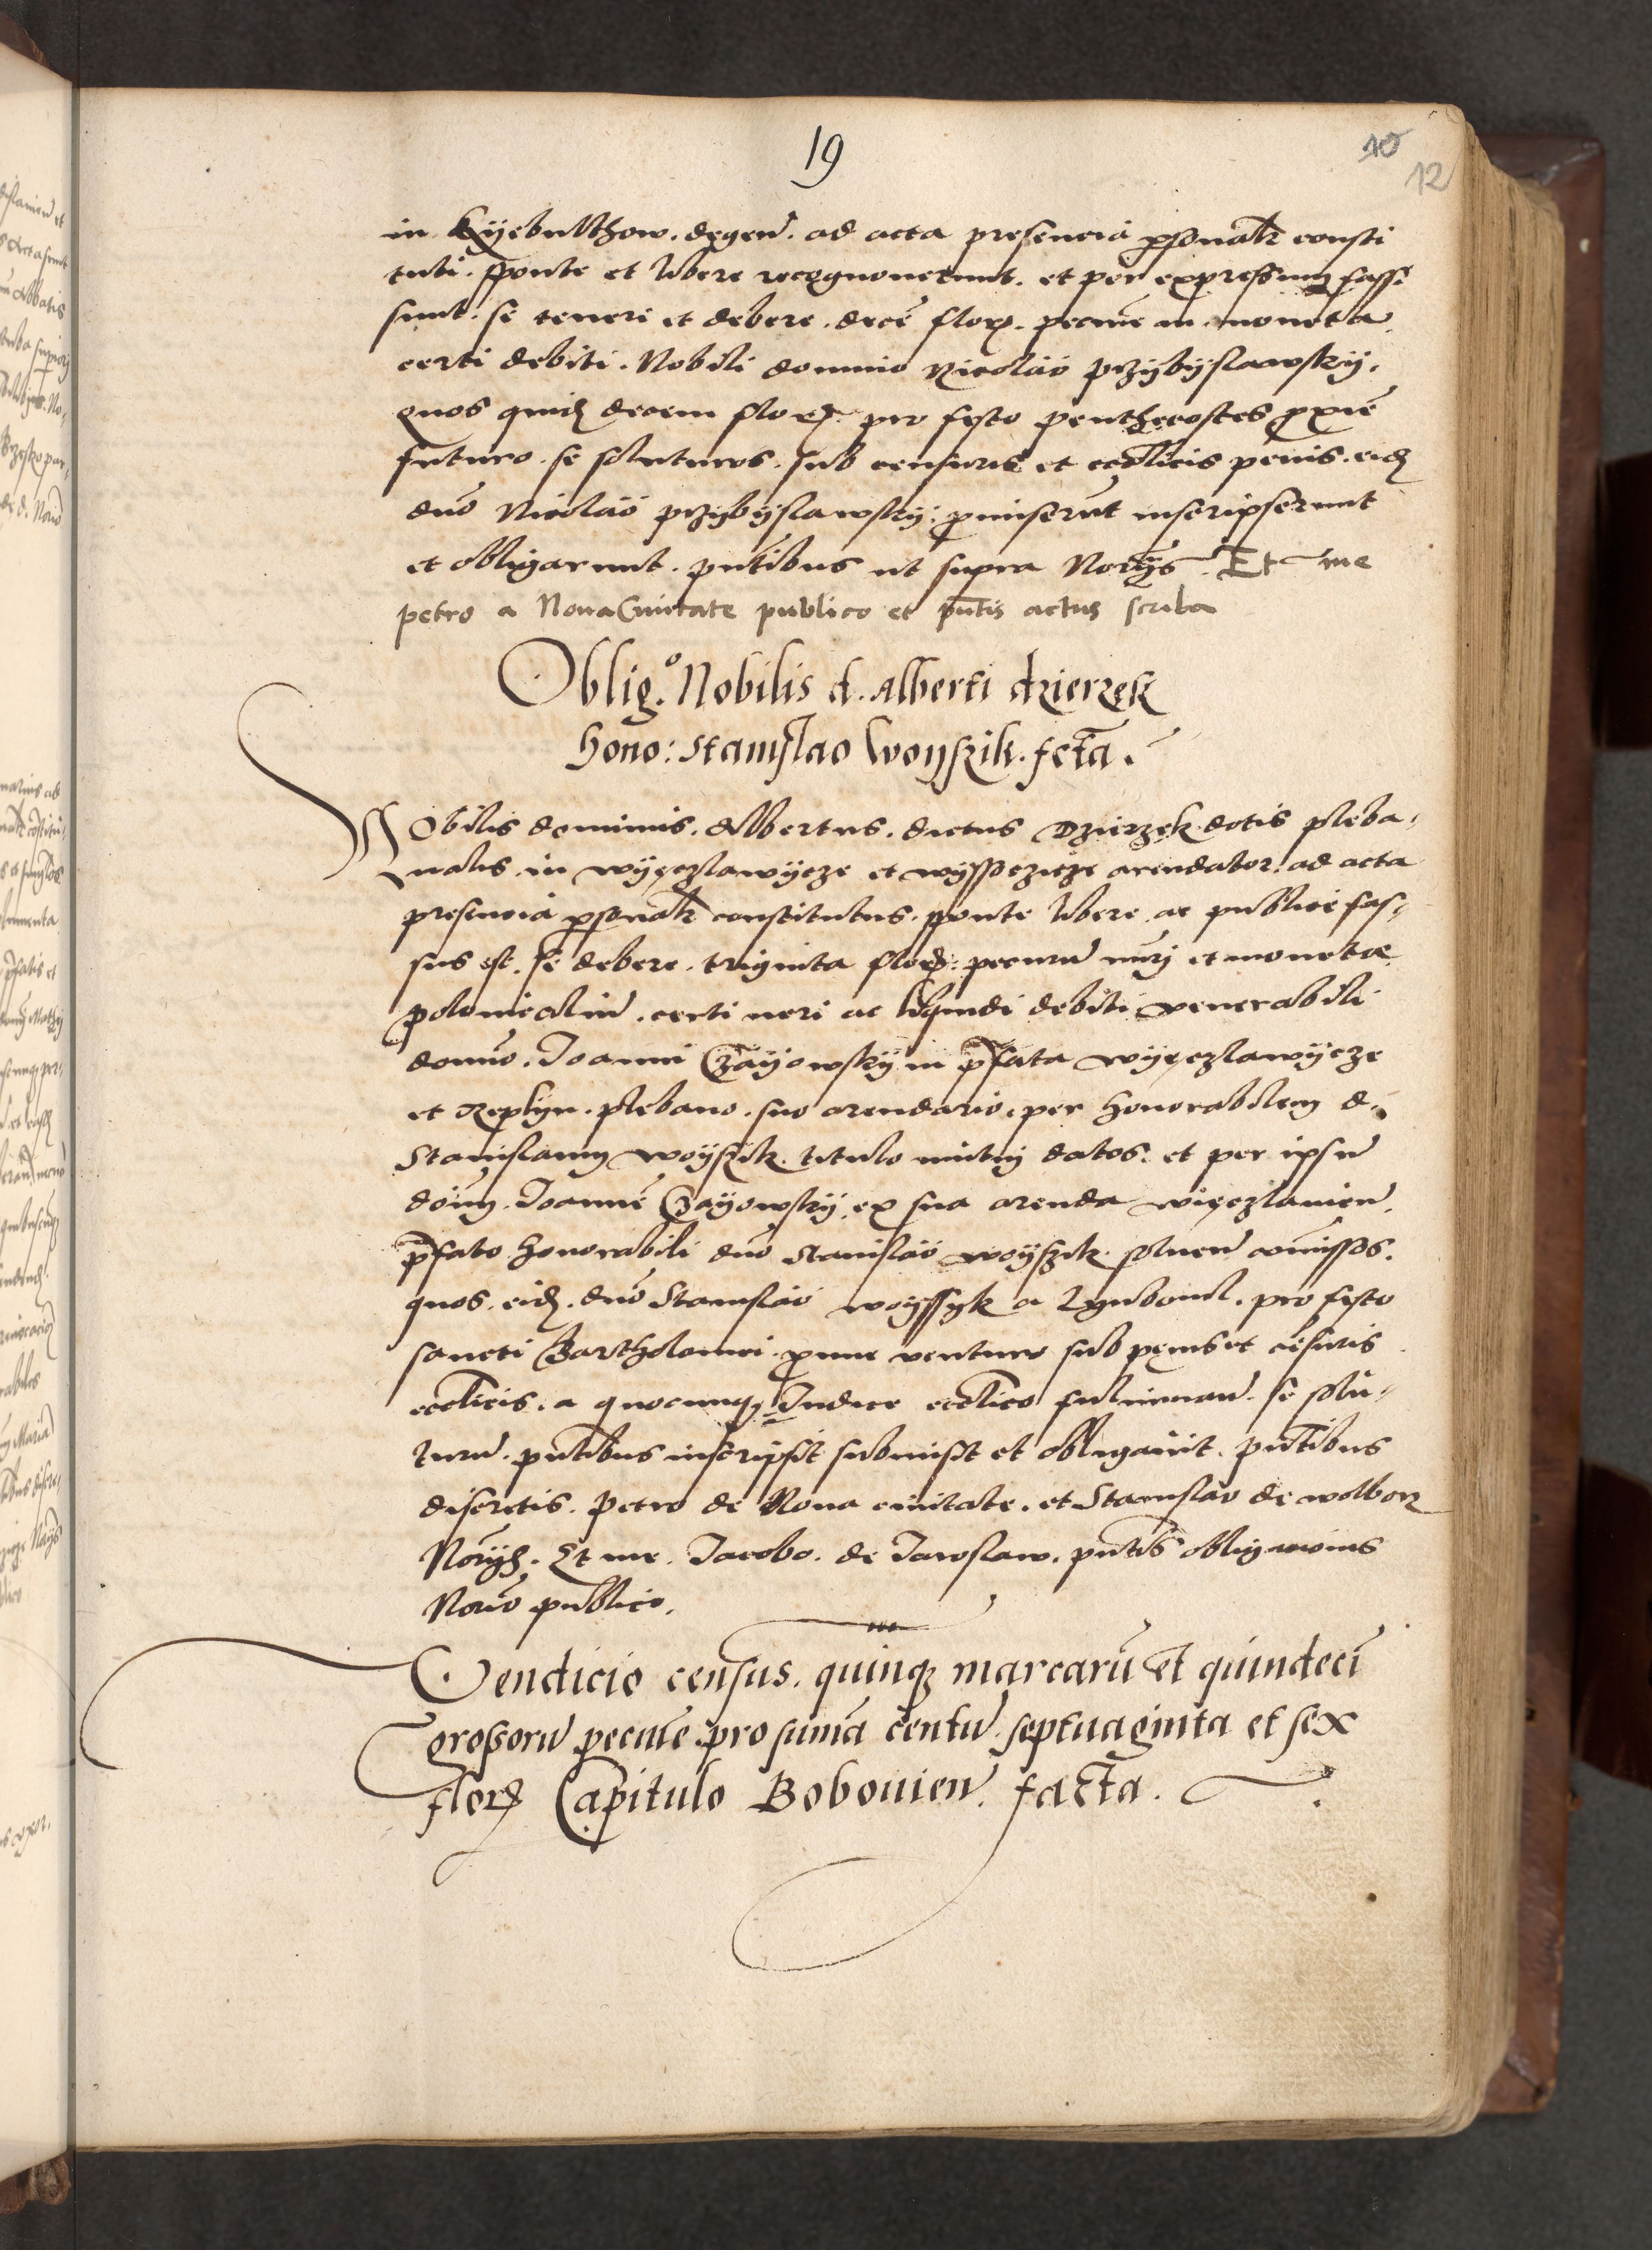 19
10
12
in Kyebulthow. degen. ad acta presencia psonalr consti
tuti. sponte et libere recognouerunt. et per expressum fassi
sunt. se teneri et debere. decē flor. pecunie in moneta
certi debiti. Nobili domino Nicolao przybyslawsky.
quos quidē decem flor. pro festo penthecostes pxiē
futuro. se soluturos. sub censuris et ecclicis penis. eidē
duō Nicolao przybyslawsky: pmiserūt inscripserunt
et obligarunt. pntibus ut supra Norijs. Et me
petro a Noua Ciuitate publico et pntis actus scriba
Oblig.º Nobilis d. Alberti dzierzek
hono: Stanislao Woyszik. fcta.
NObilis dominus. Albertus. dictus Dzierzek dotis pleba-
nalis in wyęczlawycze et wyssoczicze arendator. ad acta
presencia psonalr constitutus. sponte libere ac publice fas-
sus est. se debere. triginta flor. pecunie nūri et monetæ
polonicalis. certi ueri ac liquidi debiti venerabili
domino. Joanni Czayowsky in pfata wyęczlawycze
et Rzeplyn. plebano. suo arendario. per honorabilem d.
Stanislaum woyszik. titulo mutuj datos. et per ipsū
dōīm. Joannē Czayowsky. ex sua arenda więczlauien.
pfato honorabili duō Stanislao woyszik. soluen cōmissos.
quos. eidē. duō Stanislao woyssyk a Lguboul. pro festo
sancti Bartholomei. pxime venturo sub penis et cēsuris
ecclicis. a quocunqz Iudice ecclico fulminan. se solu-
turū. pntibus inscripsit submisit et obligauit. pntibus
discretis. Petro de Noua ciuitate. et Stanislao de wolborz
Norijs. Et me. Jacobo. de Jaroslaw. pntis obligacionis
Norio publico.
Vendicio census. quinqz marcarū et quindecī
grossorū pecunie. pro sūma centū septuaginta et sex
flor Capitulo Bobouien. facta.